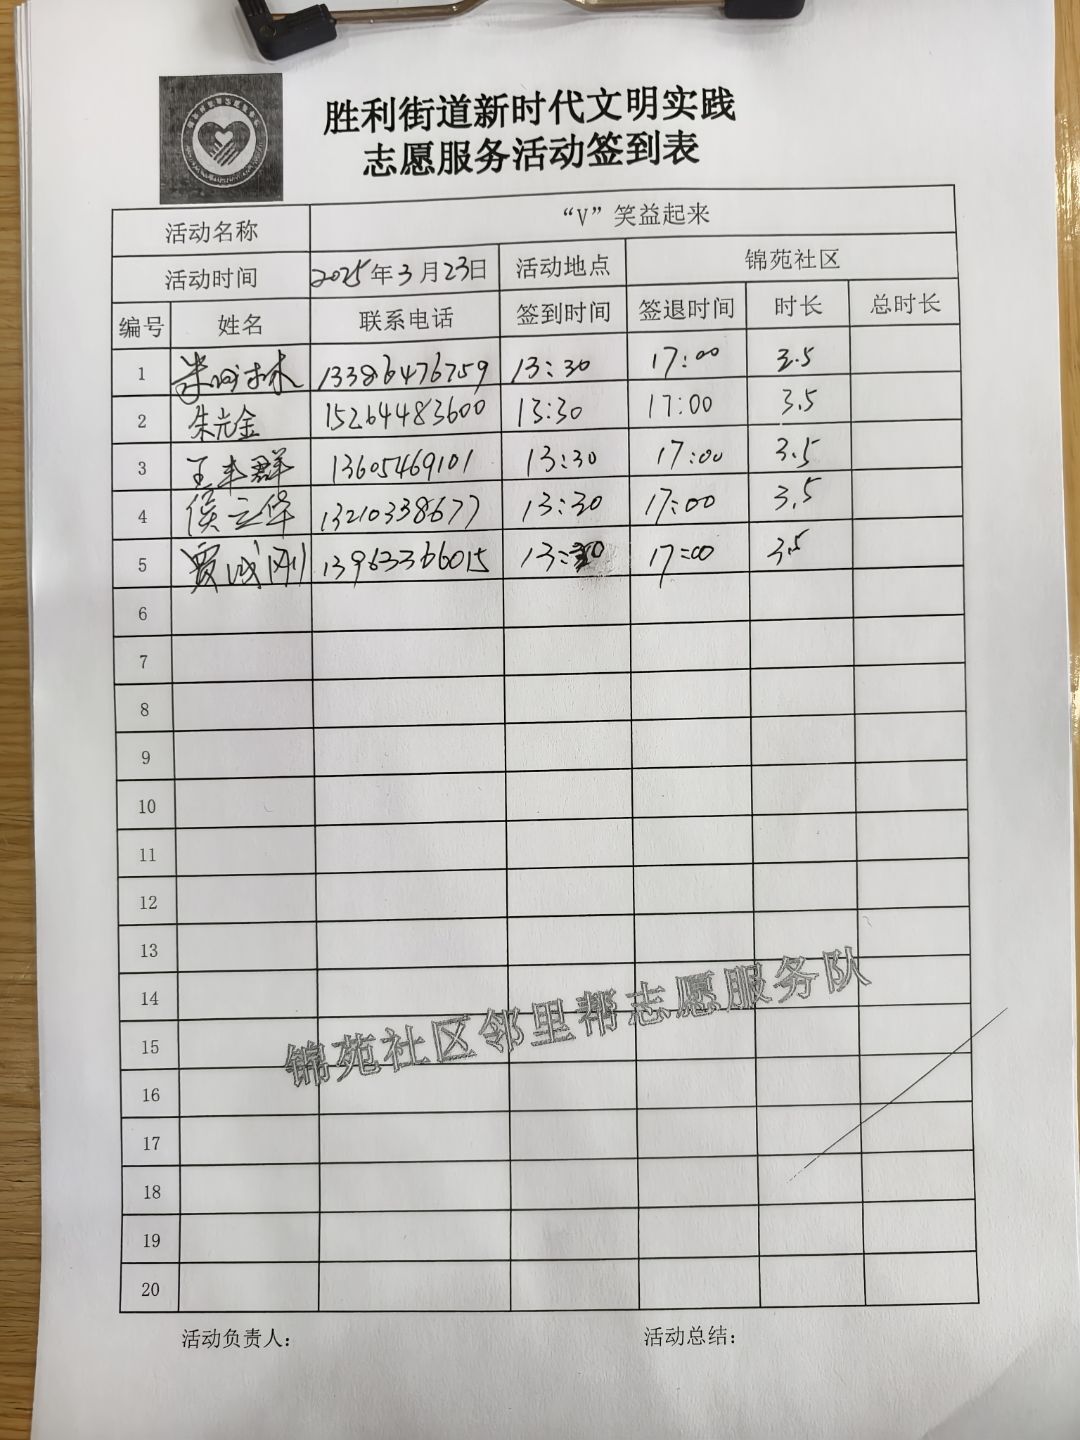 胜利街道新时代文明实践
志愿服务活动签到表
活动名称 “V”笑益起来
活动时间 2025年3月23日 活动地点 锦苑社区
编号 姓名 联系电话 签到时间 签退时间 时长 总时长
1 13386476759 13:30 17:00 3.5
2 朱光金 15264483600 13:30 17:00 3.5
3 王丰群 13605469101 13:30 17:00 3.5
4 侯立华 13210338677 13:30 17:00 3.5
5 贾成刚 13963366015 13:30 17:00 3.5
6
7
8
9
10
11
12
13
14
15
16
17
18
19
20
锦苑社区邻里帮志愿服务队
活动负责人: 活动总结: